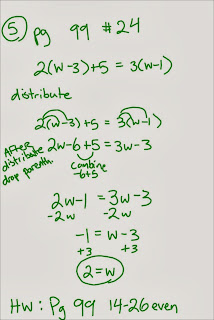 ⑤ pg 99 #24
2(w-3)+5 = 3(w-1)
distribute
2(w-3)+5 = 3(w-1)
AFTER distribute drop parenth.
2w-6+5 = 3w-3
combine
-6+5
2w-1 = 3w-3
-2w -2w
-1 = w-3
+3 +3
2=w
HW: Pg 99 14-26 even